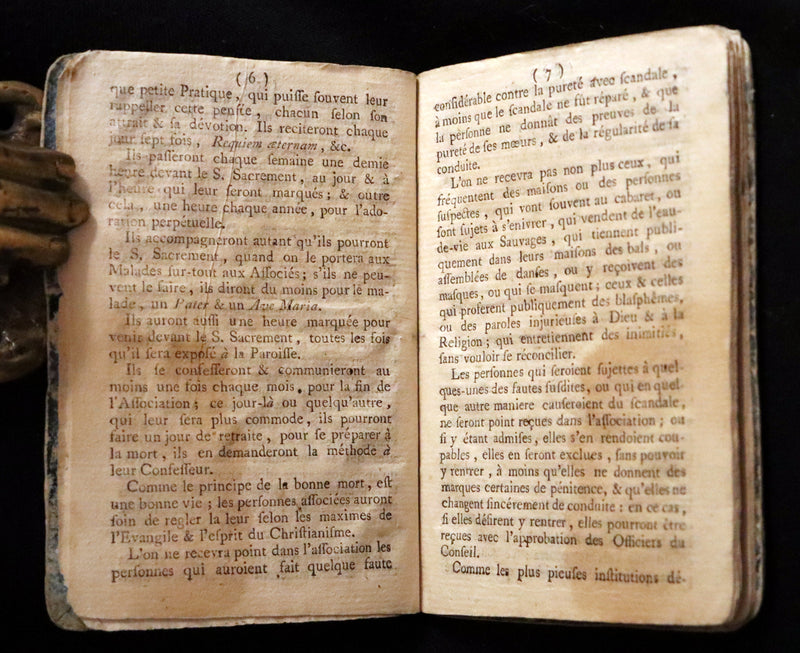 ( 6. )
que petite Pratique, qui puiſſe ſouvent leur
rappeller cette penſée, chacun ſelon ſon
attrait & ſa dévotion. Ils reciteront chaque
jour ſept fois, Requiem æternam, &c.
Ils paſſeront chaque ſemaine une demie
heure devant le S. Sacrement, au jour & à
l'heure qui leur ſeront marqués; & outre
cela, une heure chaque année, pour l'ado-
ration perpétuelle.
Ils accompagneront autant qu'ils pourront
le S. Sacrement, quand on le portera aux
Malades ſur-tout aux Aſſociés; s'ils ne peu-
vent le faire, ils diront du moins pour le ma-
lade, un Pater & un Ave Maria.
Ils auront auſſi une heure marquée pour
venir devant le S. Sacrement, toutes les fois
qu'il ſera expoſé à la Paroiſſe.
Ils ſe confeſſeront & communieront au
moins une fois chaque mois, pour la fin de
l'Aſſociation; ce jour-là ou quelqu'autre,
qui leur ſera plus commode, ils pourront
faire un jour de retraite, pour ſe préparer à
la mort, ils en demanderont la méthode à
leur Confeſſeur.
Comme le principe de la bonne mort, eſt
une bonne vie; les perſonnes aſſociées auront
ſoin de regler la leur ſelon les maximes de
l'Evangile & l'eſprit du Chriſtianiſme.
L'on ne recevra point dans l'aſſociation les
perſonnes qui auroient fait quelque faute
( 7 )
conſidérable contre la pureté avec ſcandale,
à moins que le ſcandale ne fût réparé, & que
la perſonne ne donnât des preuves de la
pureté de ſes mœurs, & de la régularité de ſa
conduite.
L'on ne recevra pas non plus ceux, qui
fréquentent des maiſons ou des perſonnes
ſuſpectes, qui vont ſouvent au cabaret, ou
ſont ſujets à s'enivrer, qui vendent de l'eau-
de-vie aux Sauvages, qui tiennent publi-
quement dans leurs maiſons des bals, ou
aſſemblées de danſes, ou y reçoivent des
maſques, ou qui ſe maſquent; ceux & celles
qui proferent publiquement des blaſphêmes,
ou des paroles injurieuſes à Dieu & à la
Religion; qui entretiennent des inimitiés,
ſans vouloir ſe réconcilier.
Les perſonnes qui ſeroient ſujettes à quel-
ques-unes des fautes ſuſdites, ou qui en quel
que autre maniere cauſeroient du ſcandale,
ne ſeront point reçues dans l'aſſociation; ou
ſi y étant admiſes, elles s'en rendoient cou-
pables, elles en ſeront excluës, ſans pouvoir
y rentrer, à moins qu'elles ne donnent des
marques certaines de pénitence, & qu'elles ne
changent ſincérement de conduite: en ce cas,
ſi elles déſirent y rentrer, elles pourront être
reçues avec l'approbation des Officiers du
Conſeil.
Comme les plus pieuſes inſtitutions dé-